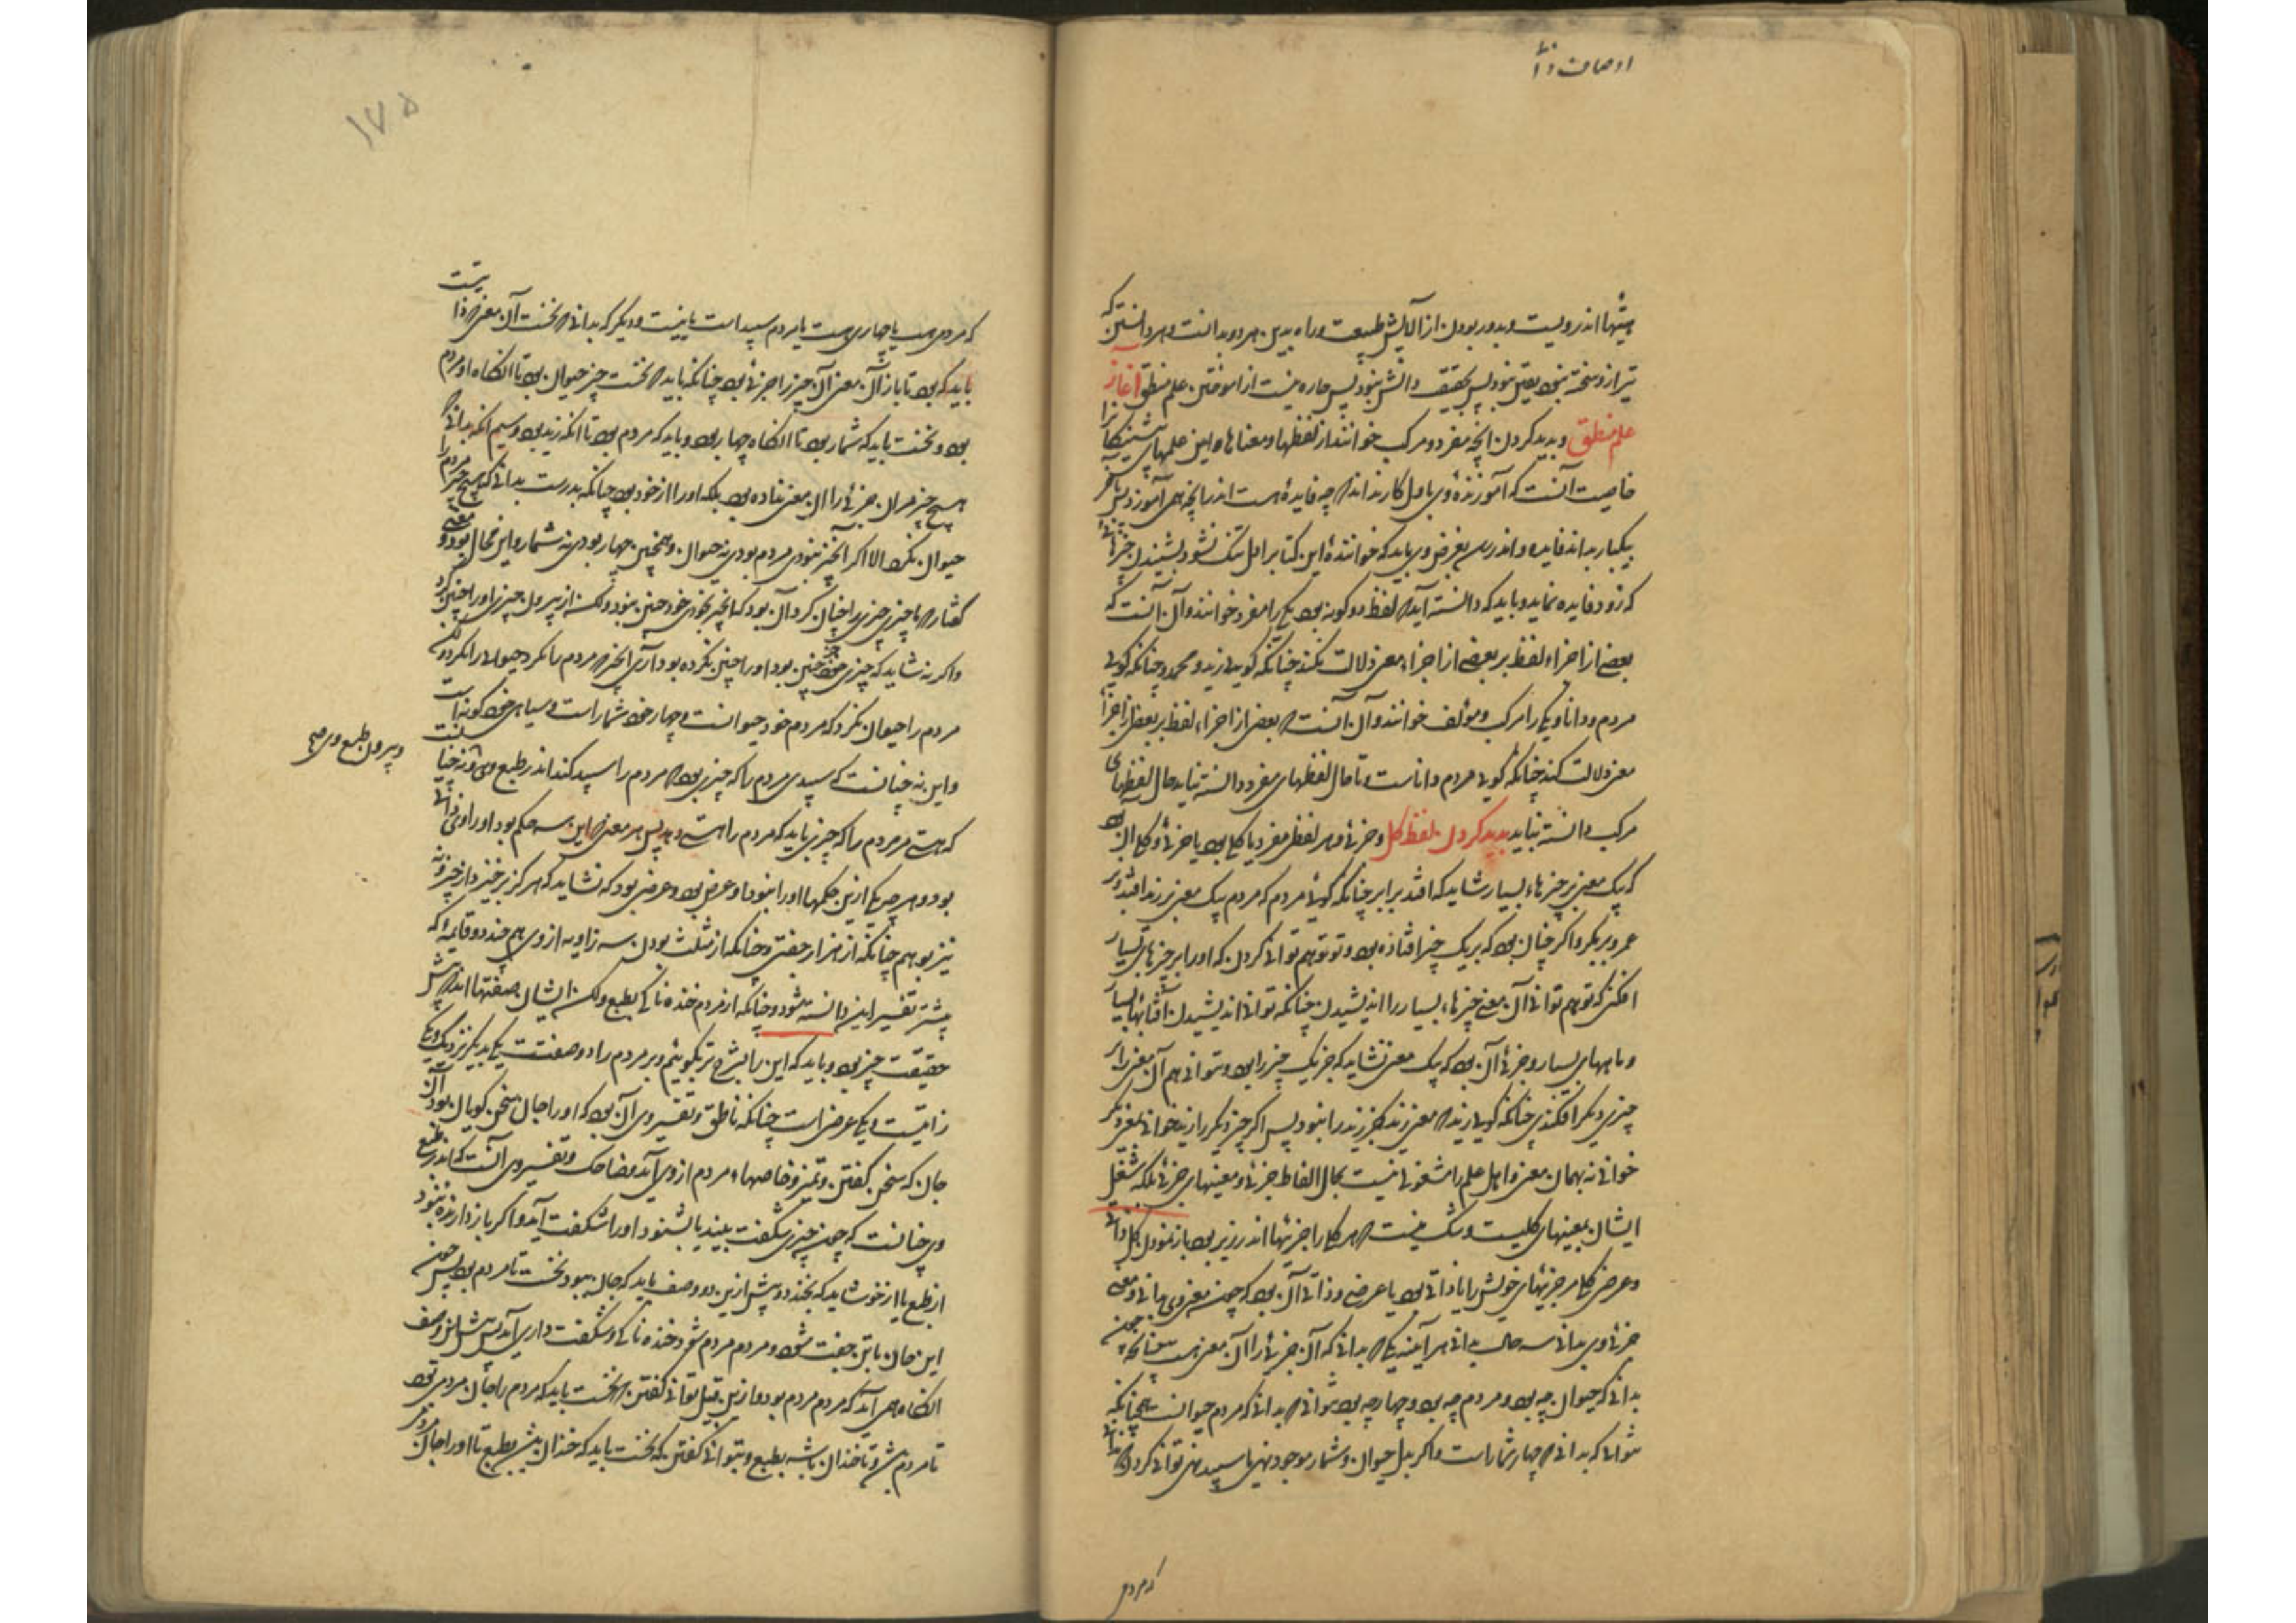 اوصاف ذاتی
پیشها اندرویست و بدور بودن از آلایش طبیعت و راه بدین هر دو بدانست و هر دانستن که
ترازو سخته نبود یقین نبود پس بحقیقت دانش نبود پس چاره نیست از آموختن علم منطق آغاز
علم منطق و پدید کردن آنچه مفرد و مرکب خوانند از لفظها و معناها و این علمهای پیشینگان را
خاصیت آنست که آموزنده وی باول کار نداند که چه فایده هست اندر آنچه همی آموزد پس بآخر
بیکبار بداند فایده و اندر رسد بغرض وی باید که خواننده این کتاب را دل تنگ نشود بشنیدن چیزهائی
که زود فایده ننماید و باید که دانسته آید که لفظ دو گونه بود یکی را مفرد خوانند و آن آنست که
بعضی از اجزاء لفظ بر بعضی از اجزاء معنی دلالت نکند چنانکه گویی زید و محمد و چنانکه گویی
مردم و دانا و یکی را مرکب و مؤلف خوانند و آن آنست که بعضی از اجزاء لفظ بر بعضی از اجزاء
معنی دلالت کند چنانکه گویی مردم داناست و تا حال لفظهای مفرد دانسته نیاید حال لفظهای
مرکب دانسته نیاید پدید کردن لفظ کلی و جزئی و هر لفظی مفرد یا کلی بود یا جزئی و کلی آن بود
که بیک معنی بر چیزهاء بسیار شاید که افتد برابر چنانکه گویی مردم که مردم بیک معنی بر زید افتد و بر
عمرو و بر بکر و اگر چنان بود که بر یک چیز افتاده بود و تو توهم توانی کردن که او را بر چیزهای بسیار
افکنی که توهم توانی آن معنی چیزهاء بسیار را اندیشیدن چنانکه توانی اندیشیدن آفتابهای بسیار
و ماههای بسیار و جزئی آن بود که بیک معنی نشاید که جز یک چیز را بود و نتوانی هم آن معنی را بر
چیزی دیگر افکندی چنانکه گویی زید که معنی زید جز زید را نبود پس اگر چیزی دیگر را زید خوانی بمعنی دیگر
خوانی نه بهمان معنی و اهل علم را مشغولی نیست بحال الفاظ جزئی و معنیهای جزئی بلکه شغل
ایشان بمعنیهای کلیست و شک نیست که هر کلی را جزئیها اندر زیر بود باز نمودن کلی ذاتی
و عرضی کلی مر جزئیهای خویش را یا ذاتی بود یا عرضی و ذاتی آن بود که چون معنی وی بدانی و معنی
جزئی وی بدانی سه حال بدانی هر آینه یکی که بدانی که آن جزئی را آن معنی هست چنانکه چون
بدانی که حیوان چه بود و مردم چه بود و چهار چه بود نتوانی که بدانی که مردم حیوانست همچنانکه
نتوانی که بدانی که چهار شمار است و اگر بدل حیوان و شمار موجود نهی یا سپید نهی توانی کردن که بدانی
که مردم
۱۷۵
که مردم هست یا چهار هست یا مردم سپید است یا نیست و دیگر که بدانی که نخست آن معنی ذاتی
باید که بود تا باز آن معنی آن چیز را جزئی بود چنانکه باید که نخست چیز حیوان بود تا آنگاه او مردم
بود و نخست باید که شمار بود تا آنگاه چهار بود و باید که مردم بود تا آنکه زید بود و سیم آنکه بدانی که
هیچ چیز مر آن جزئی را آن معنی نداده بود بلکه او را از خود بود چنانکه بدرست بدانی که هیچ چیز مردم را
حیوان نکرد و الا اگر آن چیز نبودی مردم بودی نه حیوان و همچنین چهار بودی نه شمار و این محال بود و معنی
گفتار ما که چیزی چیزی را چنان کرد آن بود که آن چیز بخودی خود چنین نبود ولکن از بیرون چیزی او را چنین کرد
و اگر نه شاید که چیزی خود چنین بود او را چنین نکرده بود آری آن چیز که مردم را کرد حیوان را کرد ولکن
مردم را حیوان نکرد که مردم خود حیوانست و چهار خود شمار است و سیاهی خود گونه است
و این نه چنانست که سپیدی مردم را که چیزی بود که مردم را سپید کند اندر طبع وی و نه چنانست
و بیرون طبع وی صح
که هستی مر مردم را که چیزی باید که مردم را هستی دهد پس هر معنی که این سه حکم بود او را وی ذاتی
بود و هرچه یکی ازین حکمها او را نبود او عرضی بود و عرضی بود که نشاید که هرگز برخیزد از چیز و نه
نیز بوهم چنانکه از هزار جفتی و چنانکه از مثلث بودن سه زاویه از وی هم چند دو قایمه که
پیشتر تفسیر این دانسته شود و چنانکه از مردم خنده ناکی بطبع ولکن ایشان صفتها اند که پس
حقیقت چیز بود و باید که این را بشرح تر بگوییم و بر مردم را دو صفتست یکی بدیگر نزدیک و یکی
ذاتیست و یکی عرضی است چنانکه ناطق و تفسیر وی آن بود که او را جان سخن گویان بود آن
جان که سخن گفتن و تمیز و خاصهاء مردم از وی آید و ضاحک و تفسیر وی آنست که اندر طبع
وی چنانست که چون چیزی شگفت بیند یا بشنود او را شگفت آید و اگر باز دارنده نبود
از طبع یا از خو شاید که بخندد و پیش ازین دو وصف باید که جان بود نخست تا مردم بود پس چون
این جان با تن جفت شود و مردم مردم شود خنده ناکی و شگفت داری آید پس این وصف
آنگاه همی آید که مردم مردم بود و ازین قبل توانی گفتن که نخست باید که مردم را جان مردمی بود
تا مردم شود و تا خندان باشد بطبع و نتوانی گفتن که نخست باید که خندان شد بطبع تا او را جان مردمی